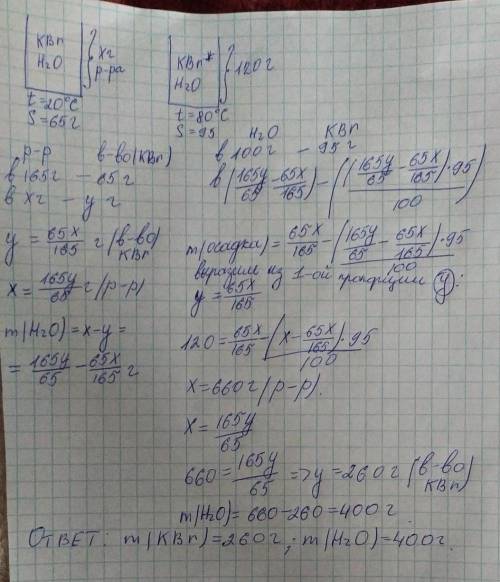 KBr
H₂O
} xг
р-ра
t=20°C
S=65г
KBr*
H₂O
} 120г
t=80°C
S=95
р-р в-во(KBr)
в 165г — 65г
в xг — y г
y = 65x/165 г (в-во) KBr
x = 165y/65 г (р-р)
m(H₂O) = x-y =
= 165y/65 - 65x/165 г
H₂O KBr
в 100г — 95г
в (165y/65 - 65x/165) — ((165y/65 - 65x/165)·95)/100
m(осадка) = 65x/165 - ((165y/65 - 65x/165)·95)/100
выразим из 1-ой пропорции (y):
y = 65x/165
120 = 65x/165 - ((x - 65x/165)·95)/100
x = 660г (р-р).
x = 165y/65
660 = 165y/65 => y = 260г (в-во) KBr
m(H₂O) = 660-260 = 400г.
ОТВЕТ: m(KBr) = 260г; m(H₂O) = 400г.